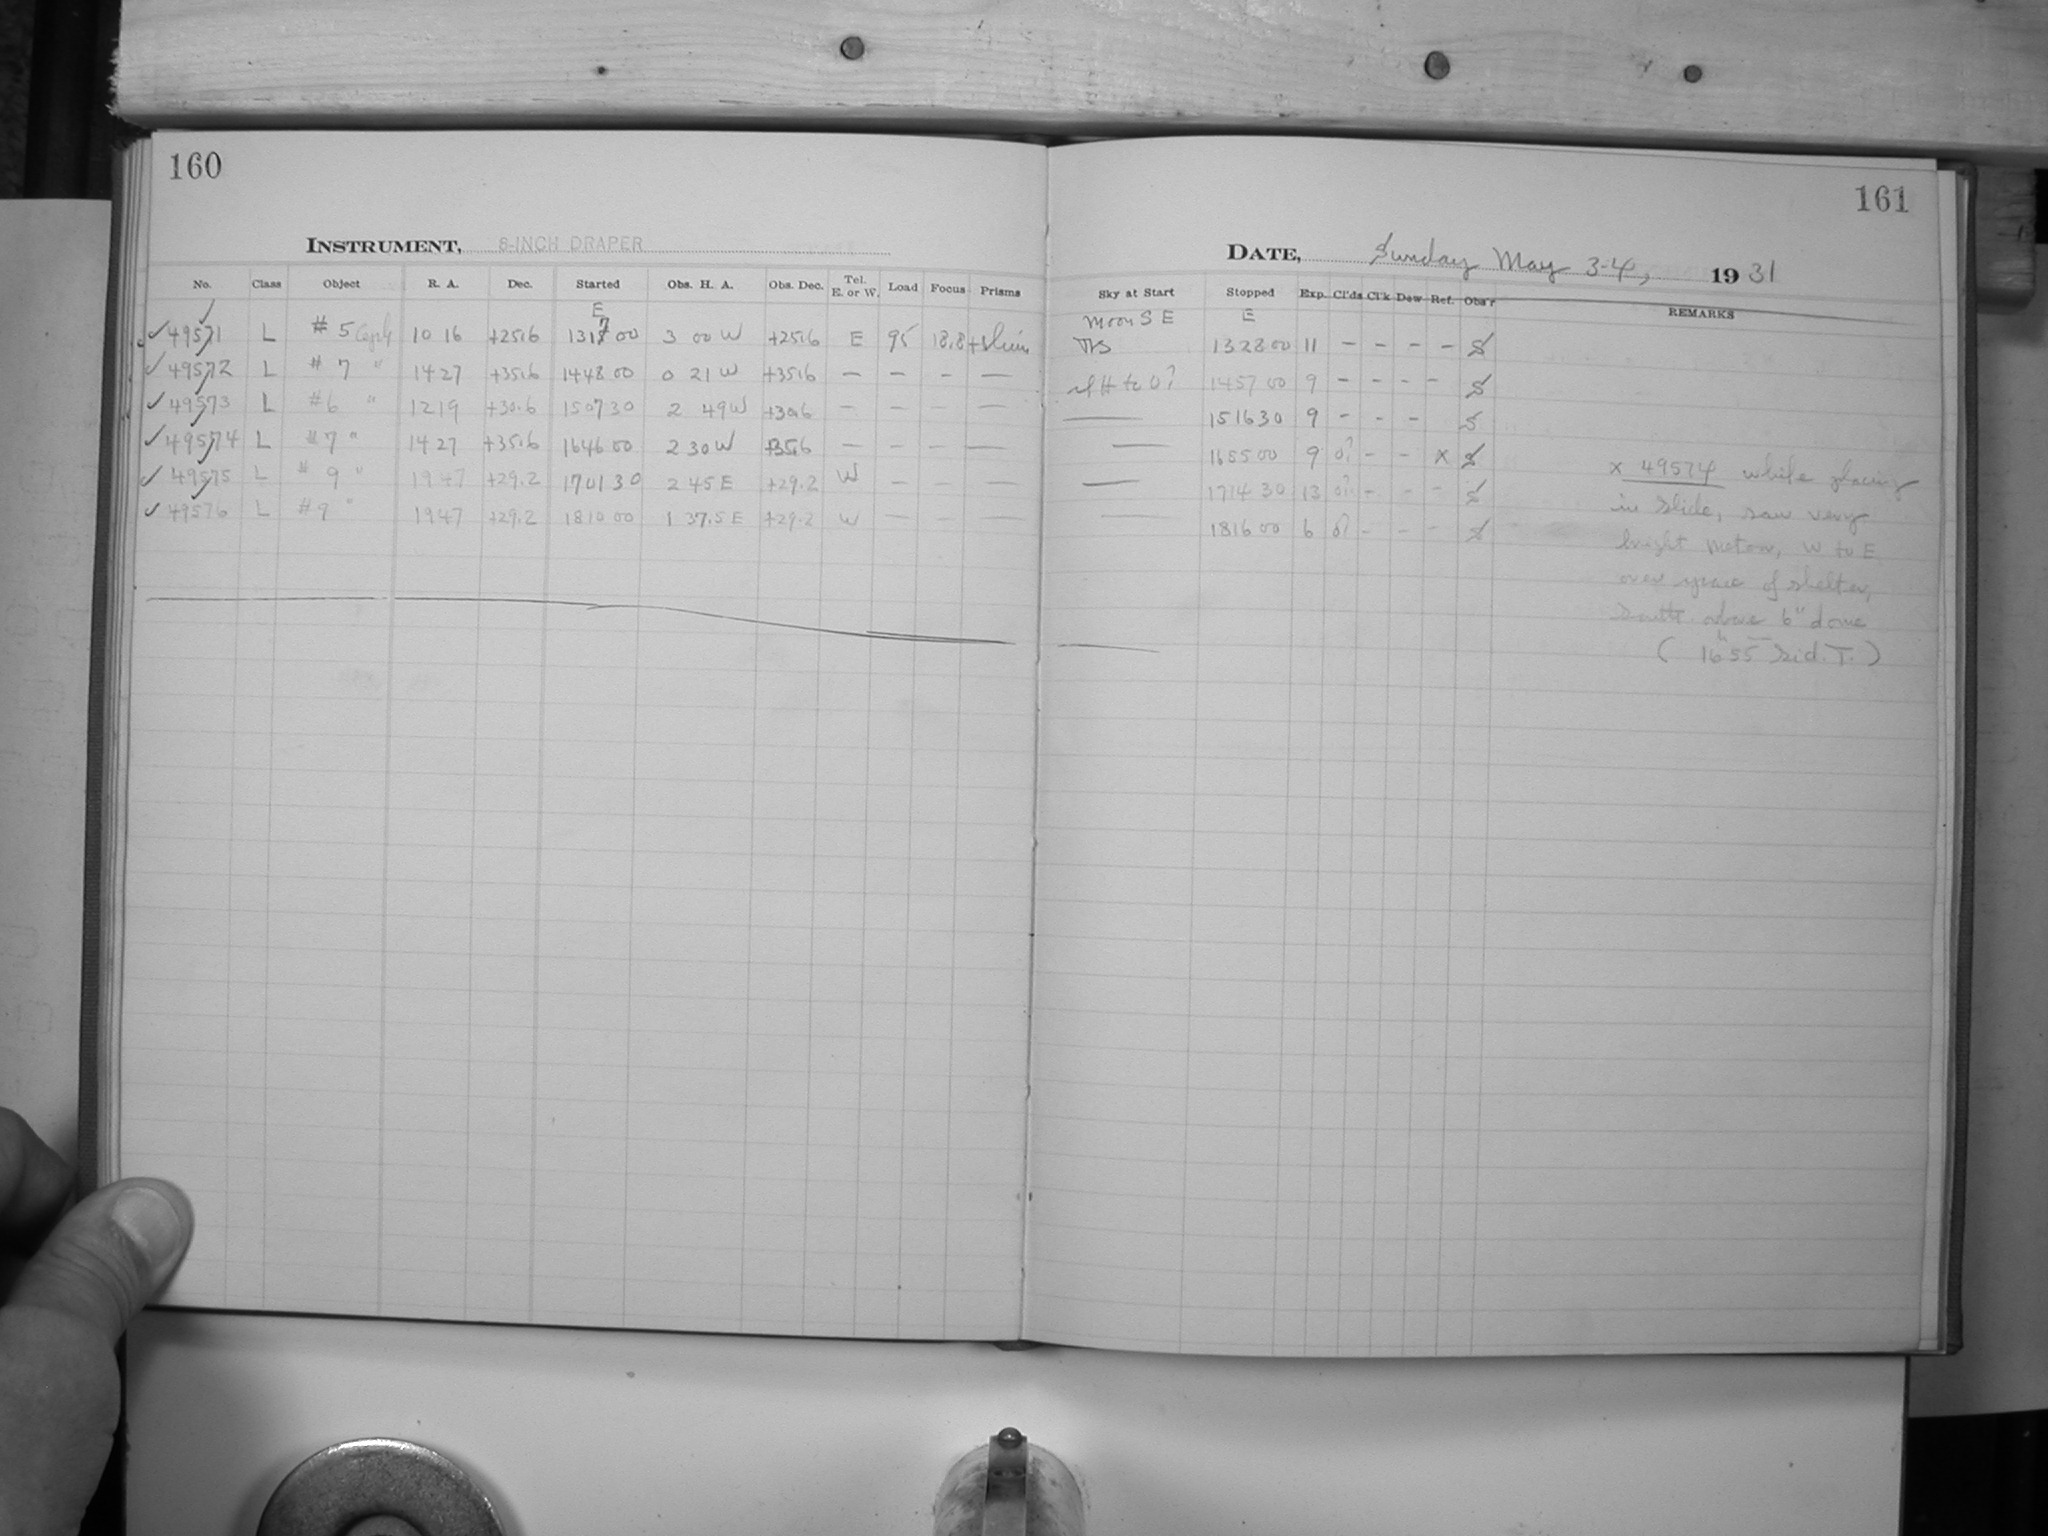 160
INSTRUMENT, 8-INCH DRAPER
No. Class Object R. A. Dec. Started Obs. H. A. Obs. Dec. Tel. E. or W. Load Focus Prisms
E
49571 L # 5 10 16 +25.6 1317 00 3 00 W +25.6 E 95 18.8
49572 L # 7 " 14 27 +35.6 1448 00 0 21 W +35.6 — — - —
49573 L #6 " 12 19 +30.6 1507 30 2 49 W +30.6 - — - —
49574 L #7 " 14 27 +35.6 1646 00 2 30 W +35.6 — — - —
49575 L # 9 " 19 47 +29.2 1701 30 2 45 E +29.2 W - — - —
49576 L #9 " 19 47 +29.2 1810 00 1 37.5 E +29.2 W — — - —
161
DATE, Sunday May 3-4, 1931
Sky at Start Stopped Exp. Cl'ds Cl'k Dew Ref. Obs'r REMARKS
Moon S E E
1328 00 11 - - - -
1457 00 9 - - - -
— 1516 30 9 - - -
— 1655 00 9 0? - - x
— 1714 30 13 0? - - -
— 1816 00 6 0? - - -
x 49574 while placing
in slide, saw very
bright meteor, W to E
over of shelter,
South above 6" dome
( 16h 55 Sid. T. )